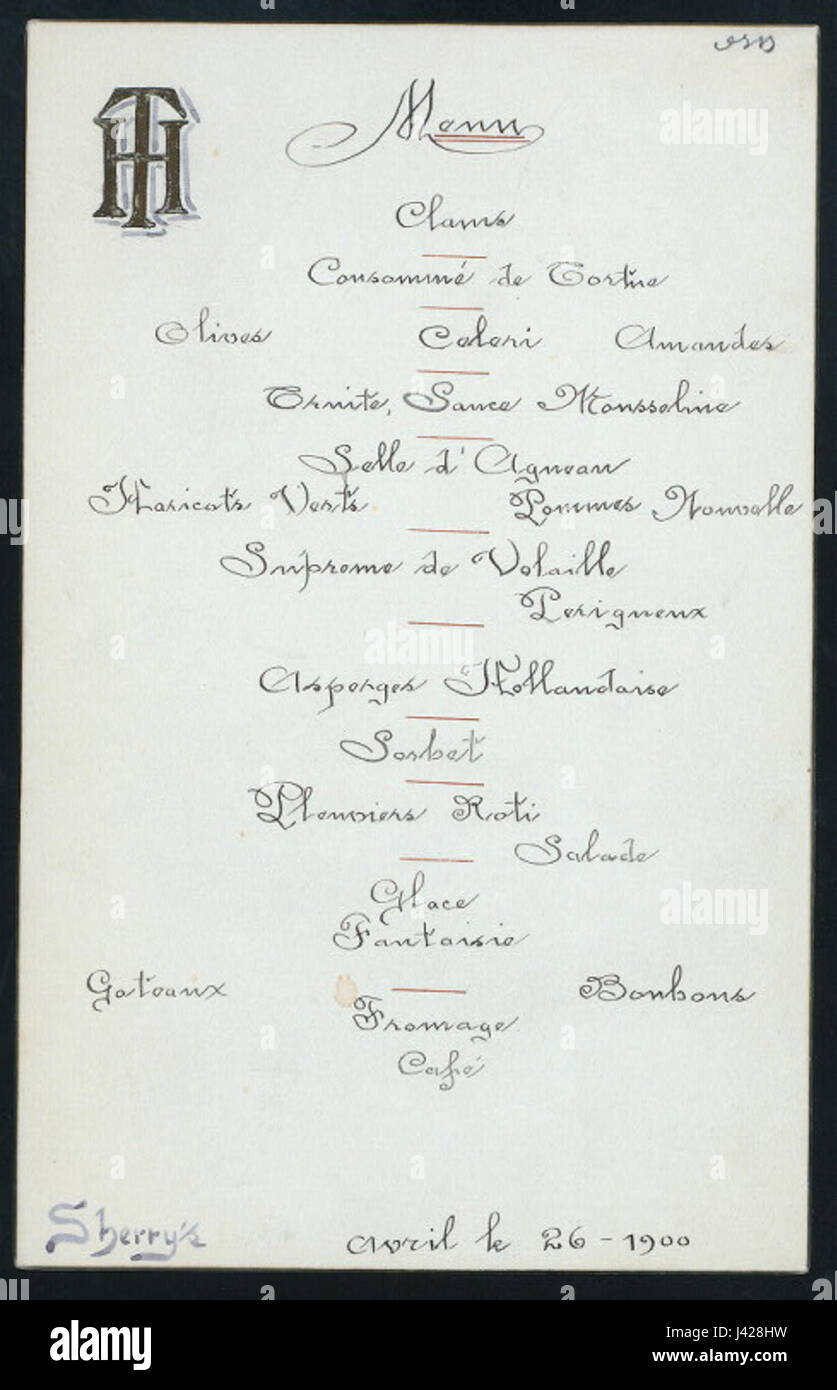 TH
Menu
Clams
Consommé de Tortue
Olives Celeri Amandes
Truite, Sauce Mousseline
Selle d'Agneau
Haricots Verts Pommes Nouvelle
Supreme de Volaille
Perigueux
Asperges Hollandaise
Sorbet
Pluviers Roti
Salade
Glace
Fantaisie
Gateaux Bonbons
Fromage
Café
Sherry's avril le 26 - 1900
alamy
alamy
alamy
alamy
alamy
Image ID: J428HW
www.alamy.com